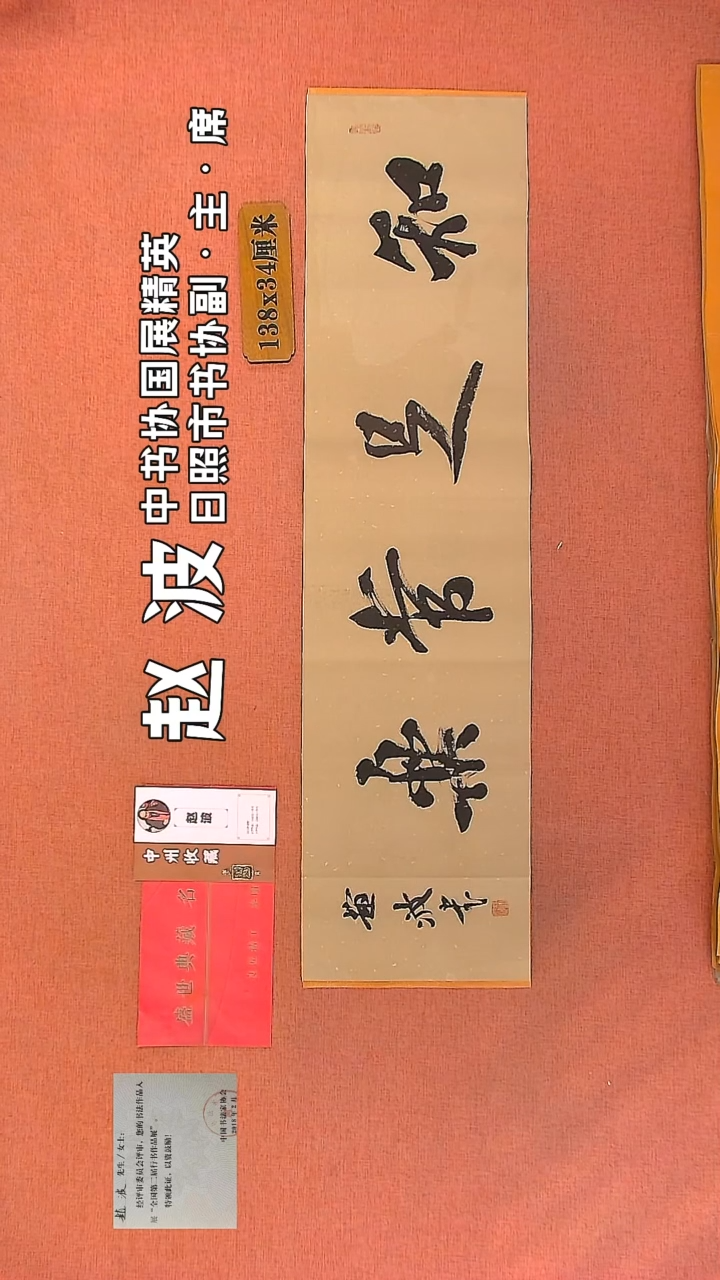 赵波
中书协国展精英
日照市书协副·主·席
138x34厘米
知足常樂
趙波书
赵波
中州收藏
盛世典藏 名
趙波 先生/女士:
经评审委员会评审，您的书法作品入
展“全国第二届行书作品展”。
特颁此证，以资鼓励!
中国书法家协会